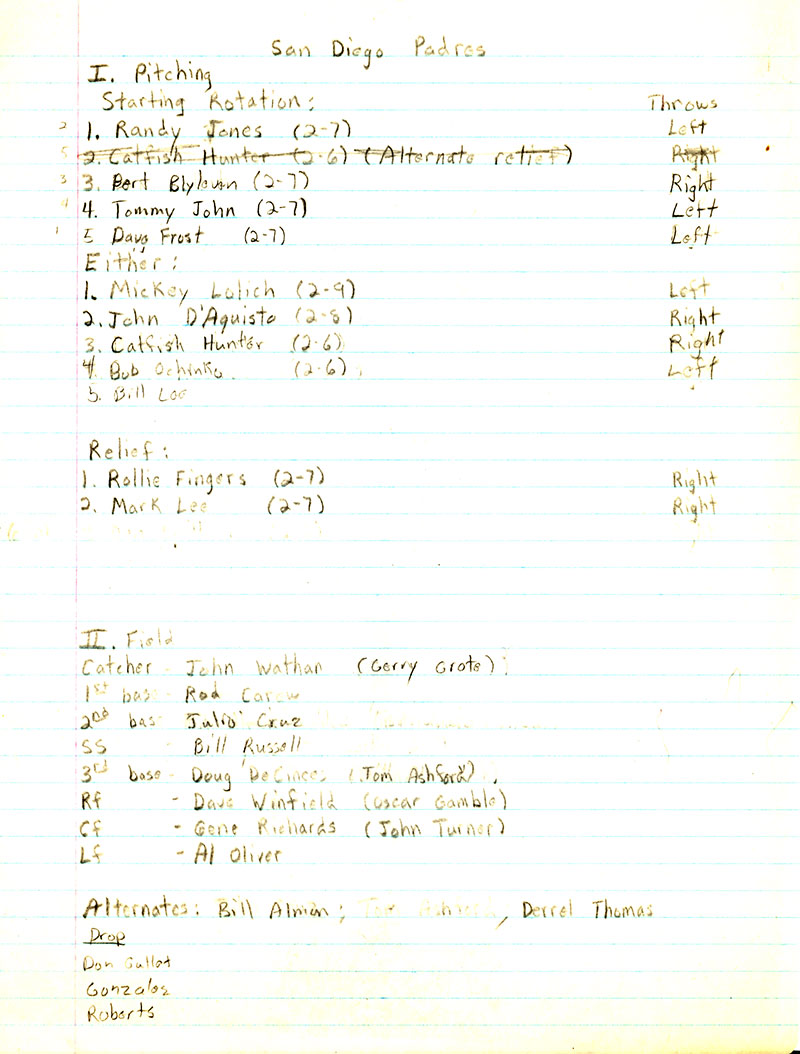 San Diego Padres
I. Pitching
Starting Rotation: Throws
2 1. Randy Jones (2-7) Left
5 2. Catfish Hunter (2-6) (Alternate relief) Right
3 3. Bert Blyleven (2-7) Right
4 4. Tommy John (2-7) Left
1 5 Dave Frost (2-7) Left
Either:
1. Mickey Lolich (2-9) Left
2. John D'Aquisto (2-8) Right
3. Catfish Hunter (2-6) Right
4 Bob Ochinko (2-6) Left
5. Bill Lee
Relief:
1. Rollie Fingers (2-7) Right
2. Mark Lee (2-7) Right
II. Field
Catcher - John Wathan (Gerry Grote)
1st base - Rod Carew
2nd base - Julio Cruz
SS - Bill Russell
3rd base - Doug DeCinces (Tom Ashford)
Rf - Dave Winfield (Oscar Gamble)
Cf - Gene Richards (John Turner)
Lf - Al Oliver
Alternates: Bill Alman; Tom Ashford, Derrel Thomas
Drop
Don Gullot
Gonzales
Roberts